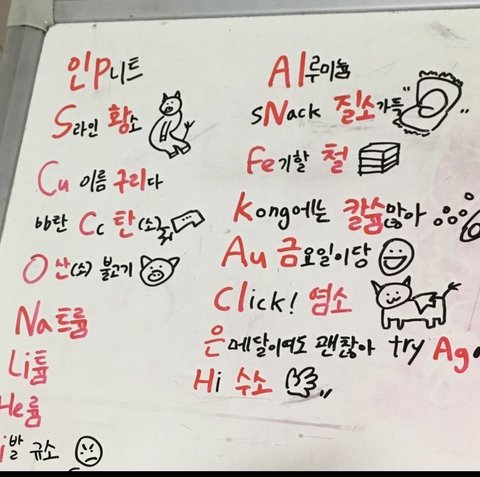 인P니트
S라인 황소
Cu 이름 구리다
빠란 Cc 탄(소)
O 산(소) 불고기
Na트륨
Li튬
He륨
i발 규소
Al루미늄
sNack 질소가득
Fe기할 철
Kong에는 칼슘많아
Au 금요일이당
Click! 염소
은메달이여도 괜찮아 try Ag
Hi 수소